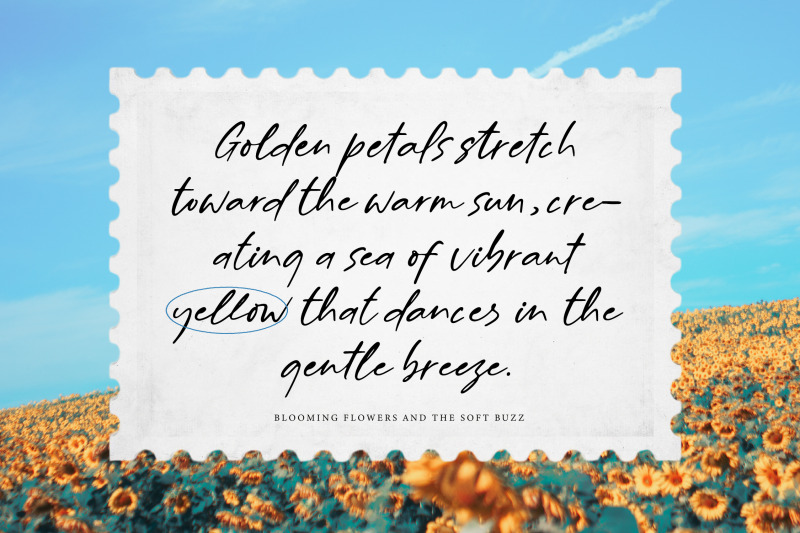 Golden petals stretch
toward the warm sun, cre-
ating a sea of vibrant
yellow that dances in the
gentle breeze.
BLOOMING FLOWERS AND THE SOFT BUZZ